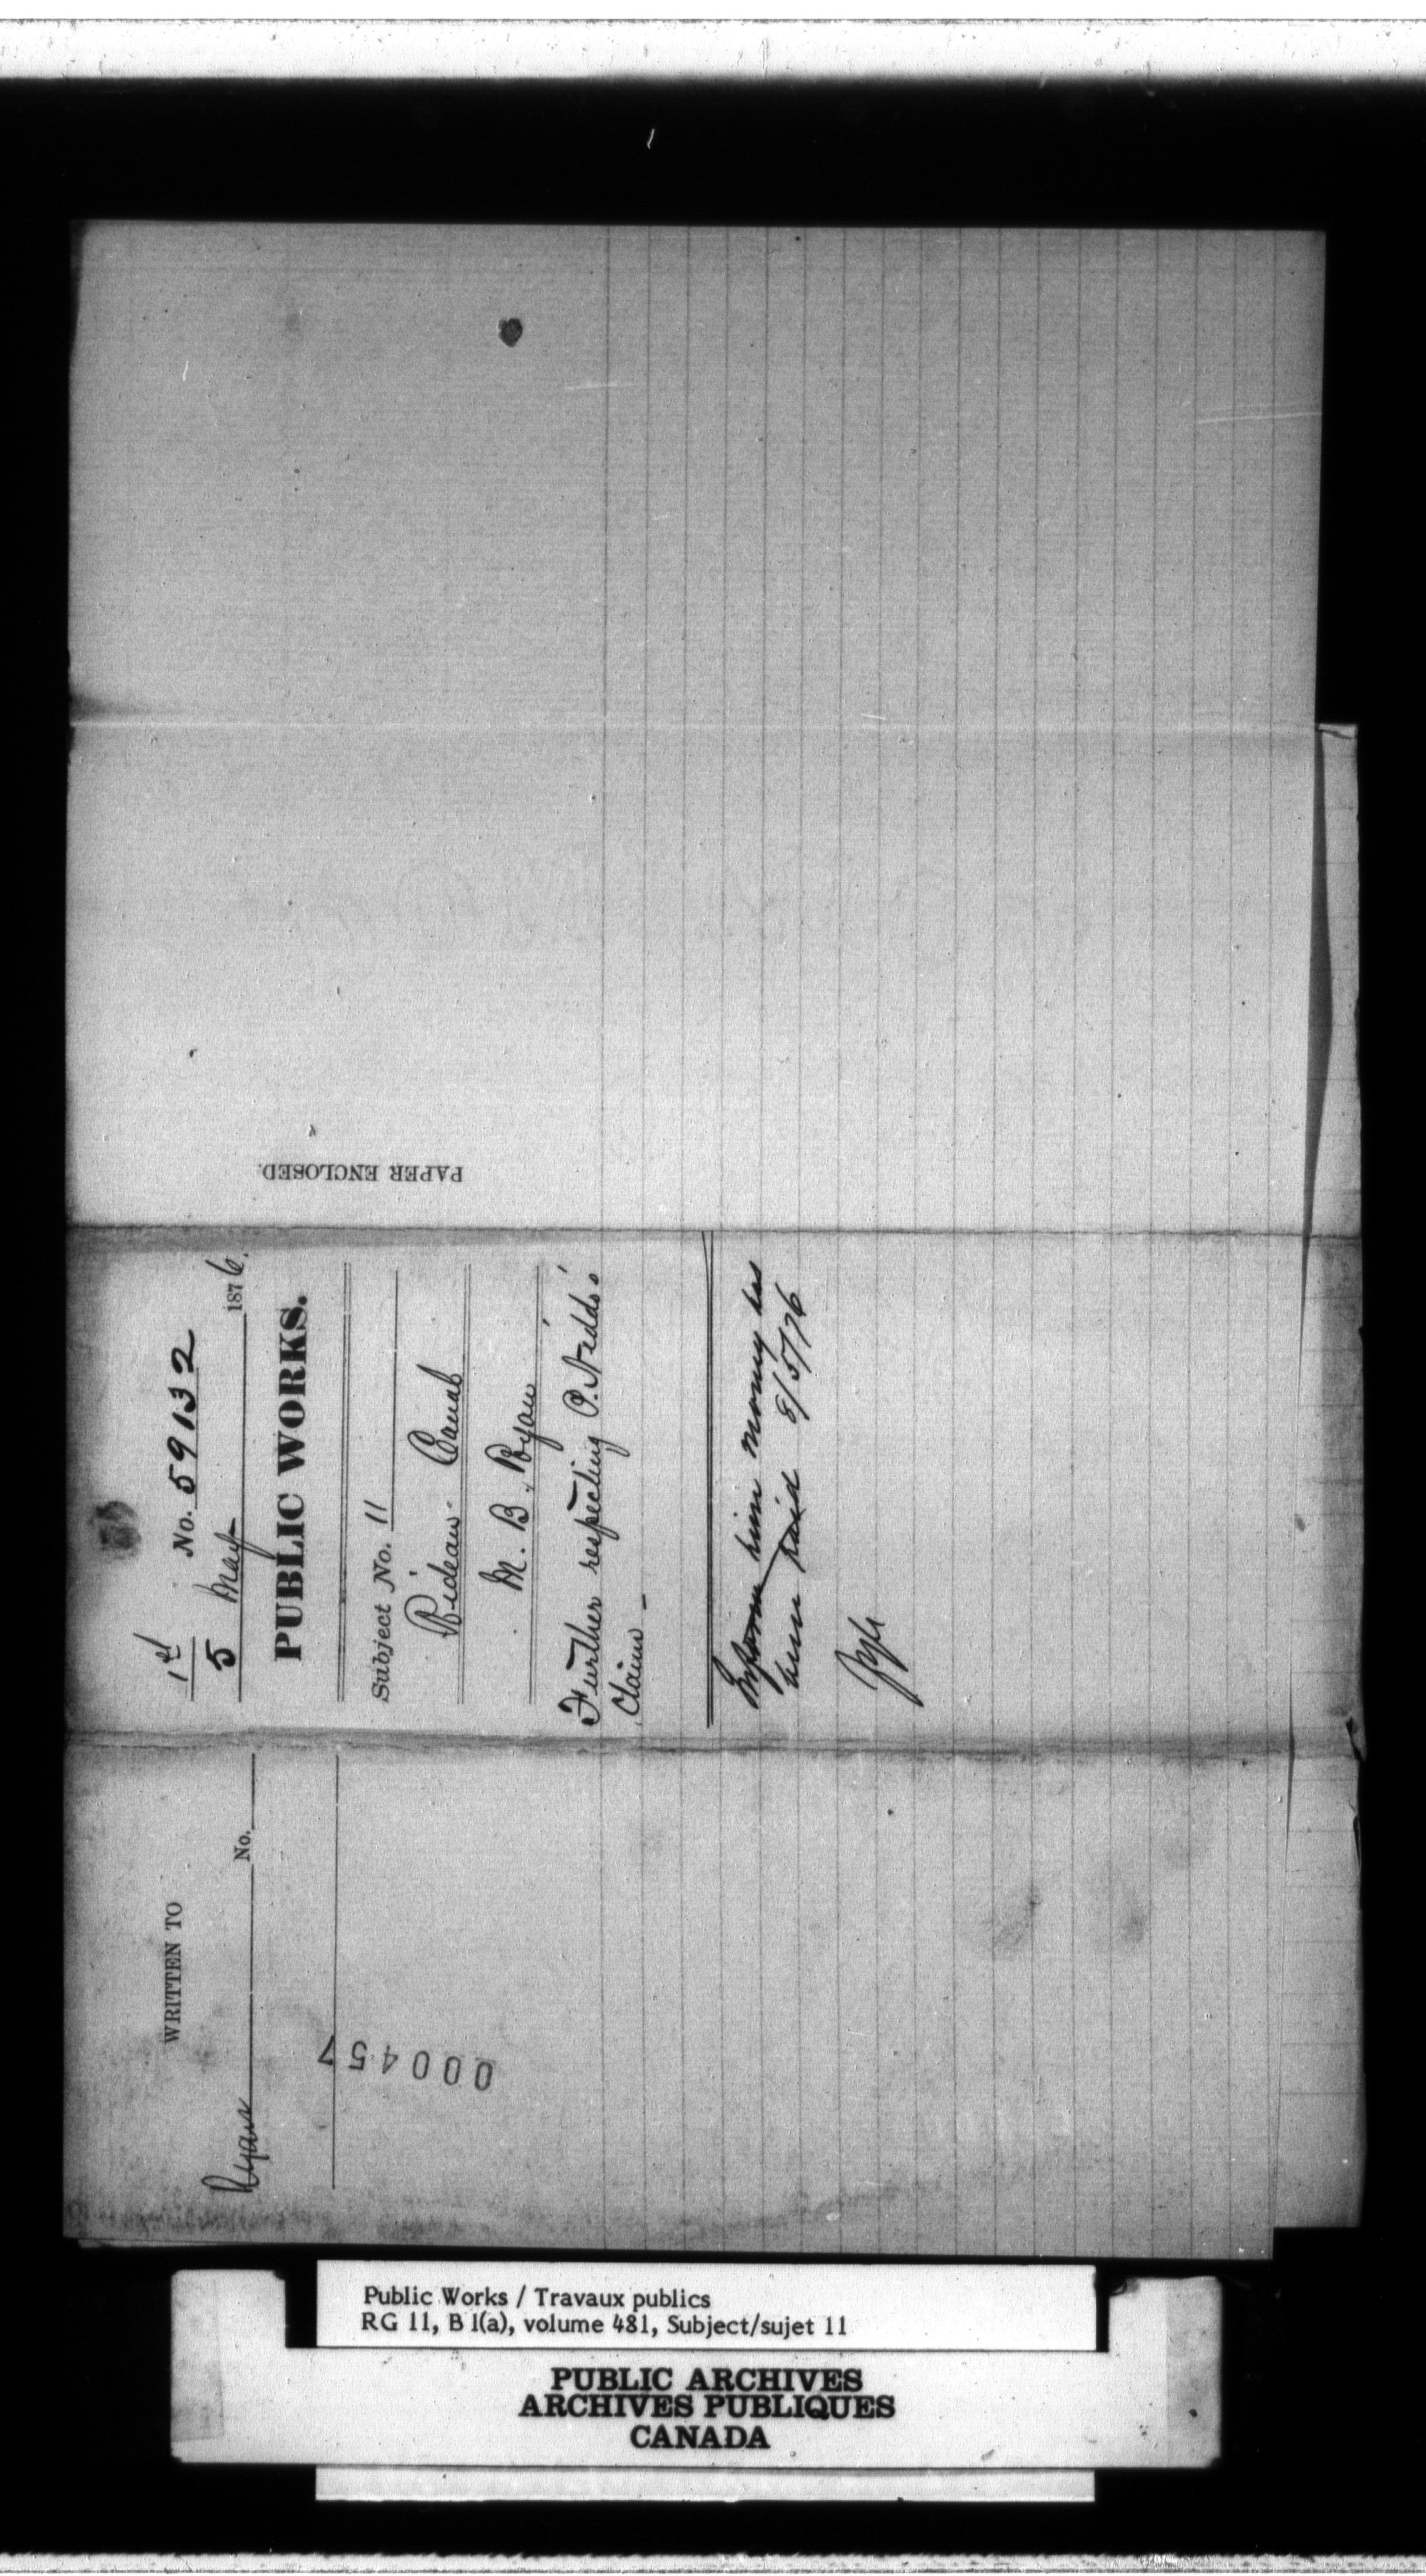 PAPER ENCLOSED.
1st
5 May 1876.
No. 59132
PUBLIC WORKS.
Subject No. 11
Rideau Canal
M. B. Ryan
Further respecting P.
Claim -
Inform him money has
been paid 8/5/76
WRITTEN TO
Ryan No.
000457
Public Works / Travaux publics
RG 11, B 1(a), volume 481, Subject/sujet 11
PUBLIC ARCHIVES
ARCHIVES PUBLIQUES
CANADA